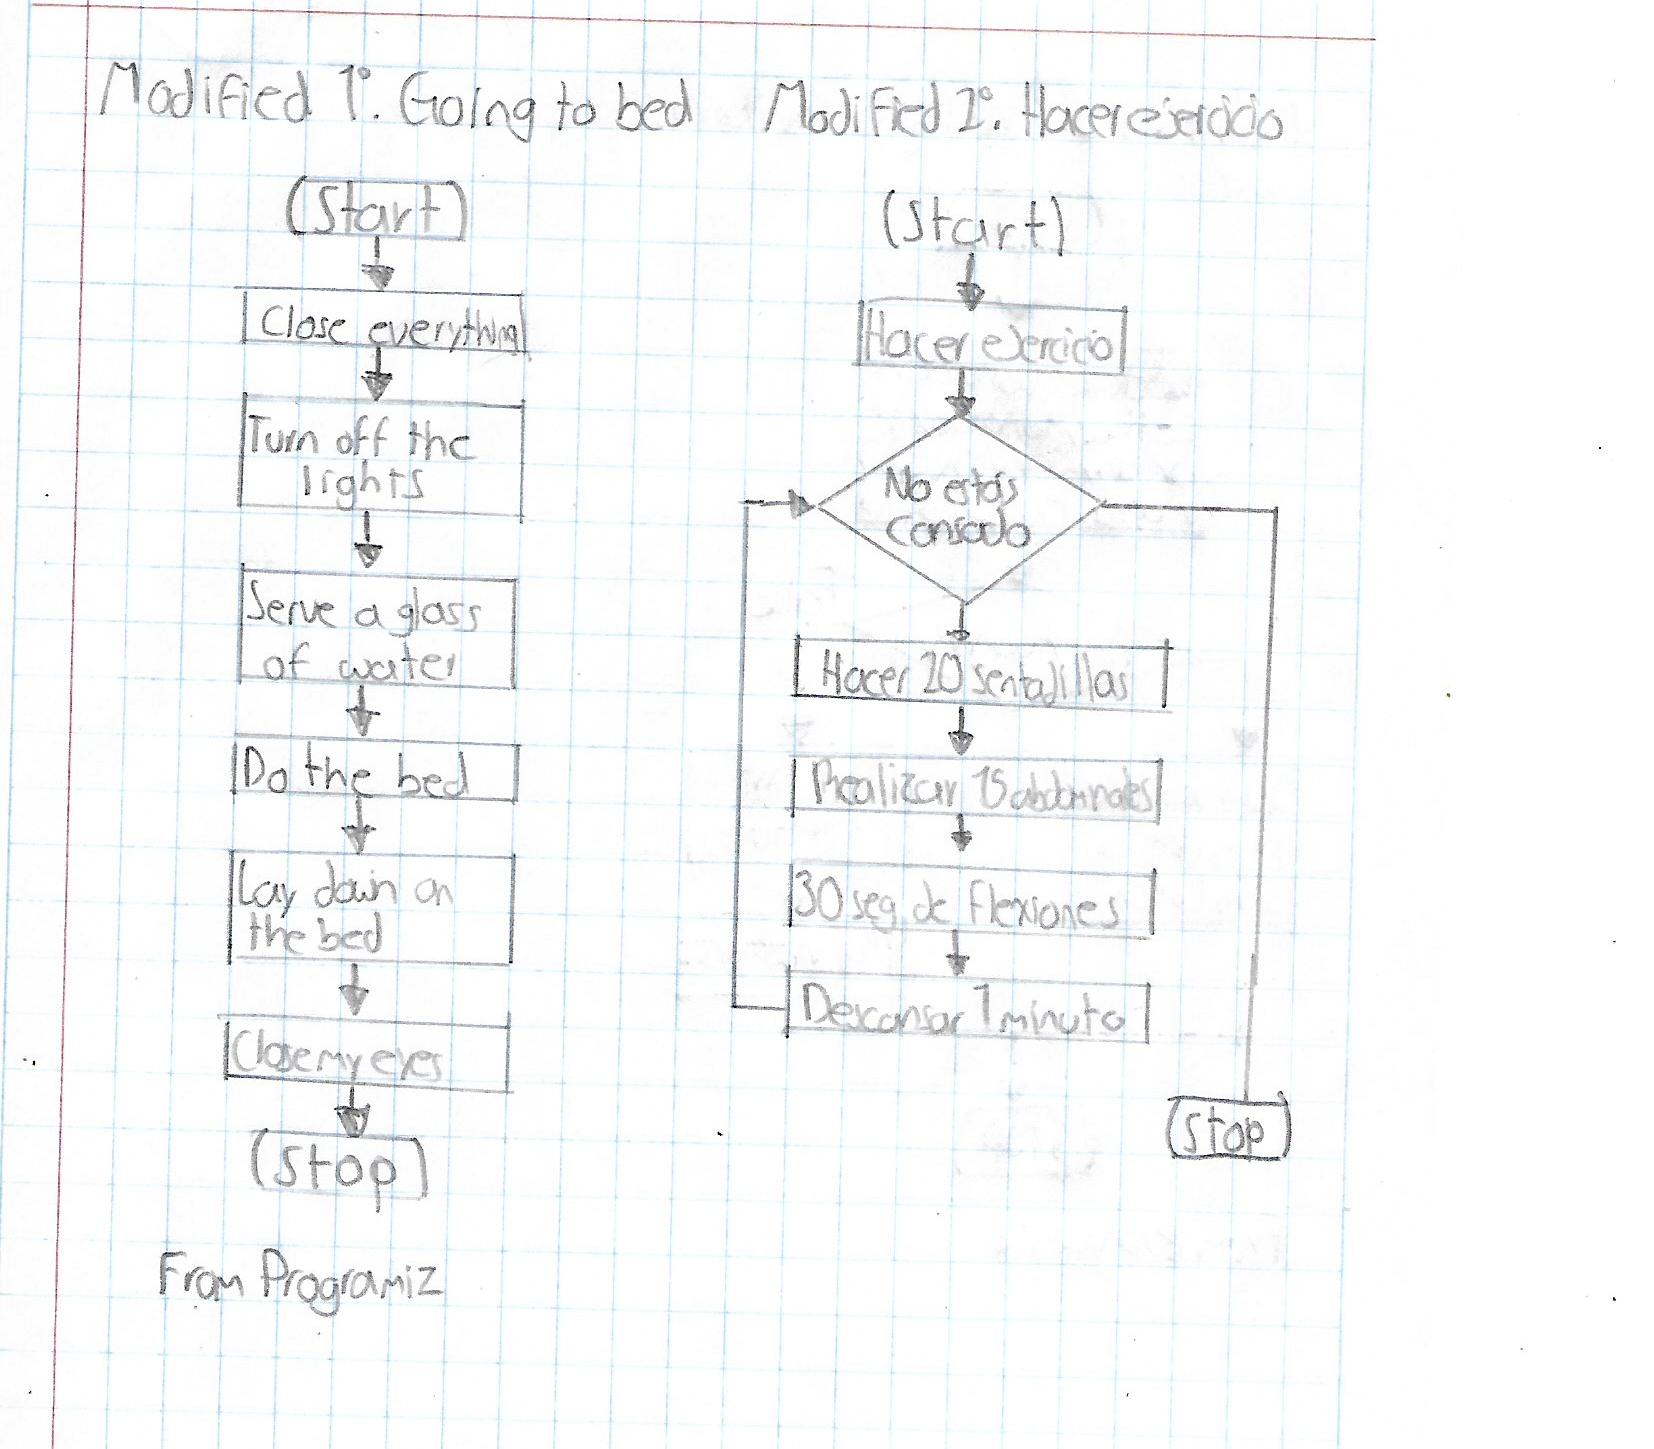 Modified 1°. Going to bed
(Start)
Close everything
Turn off the
lights
Serve a glass
of water
Do the bed
Lay down on
the bed
Close my eyes
(Stop)
From Programiz
Modified 2°. Hacer ejercicio
(Start)
Hacer ejercicio
No estás
cansado
Hacer 20 sentadillas
Realizar 15 abdominales
30 seg de flexiones
Descansar 1 minuto
(Stop)